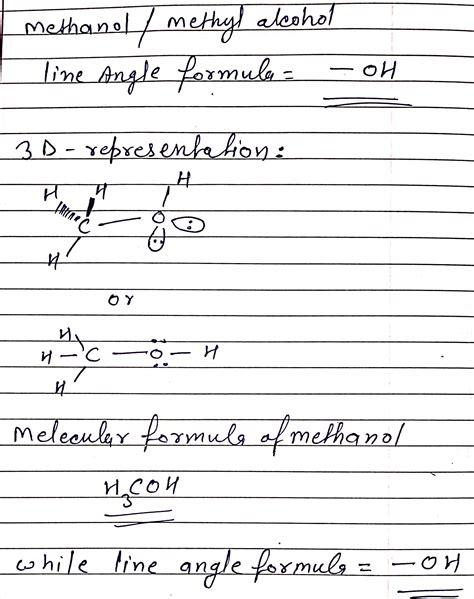 Methanol / methyl alcohol
line Angle formula = — OH
3D - representation:
H
H H
C — O
H
or
H
H — C — O — H
H
Melecular formula of methanol
H₃COH
while line angle formula = — OH